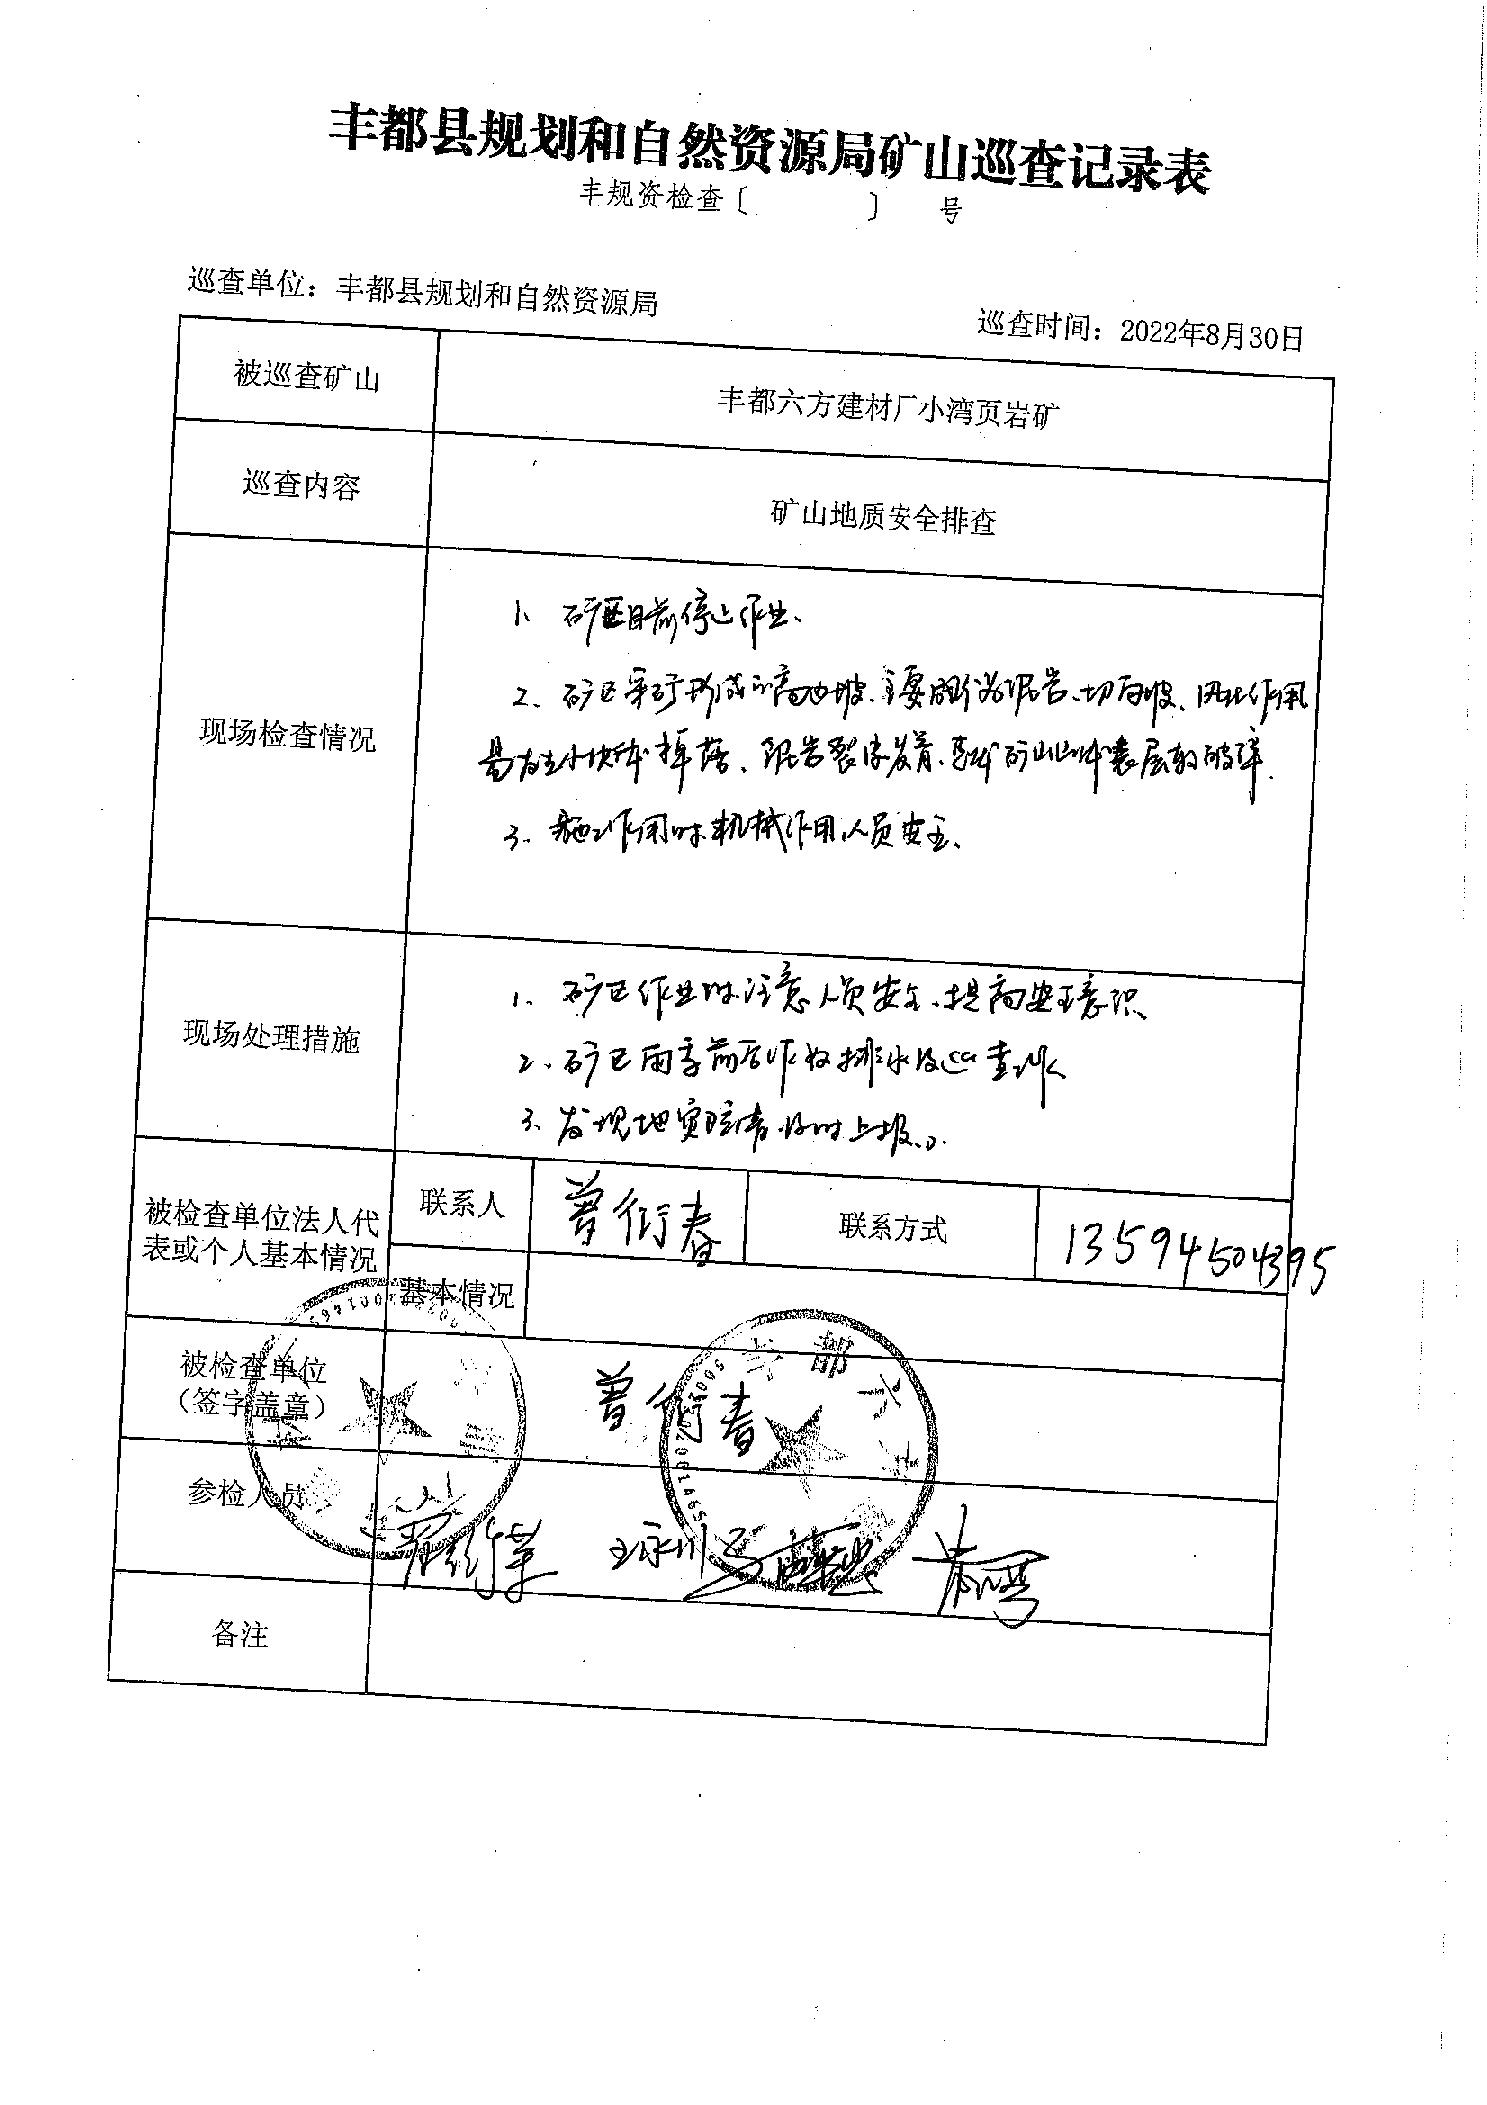 丰都县规划和自然资源局矿山巡查记录表
丰规资检查〔 〕 号
巡查单位：丰都县规划和自然资源局
巡查时间：2022年8月30日
被巡查矿山
丰都六方建材厂小湾页岩矿
巡查内容
矿山地质安全排查
现场检查情况
1、矿区目前停止作业、
2、矿区采矿形成的高边坡、主要 泥岩、切向坡、风化作用
易发生小块体掉落、泥岩裂隙发育、 矿山山体表层较破碎
3、施工作用时机械作用人员安全、
现场处理措施
1、矿区作业时注意人员安全、提高安全意识
2、矿区雨季前后作好排水及巡查工作
3、发现地灾险情及时上报。
被检查单位法人代
表或个人基本情况
联系人
曾衍春
联系方式
13594504395
基本情况
被检查单位
（签字盖章）
曾衍春
丰都六方
参检人员
王永川
备注